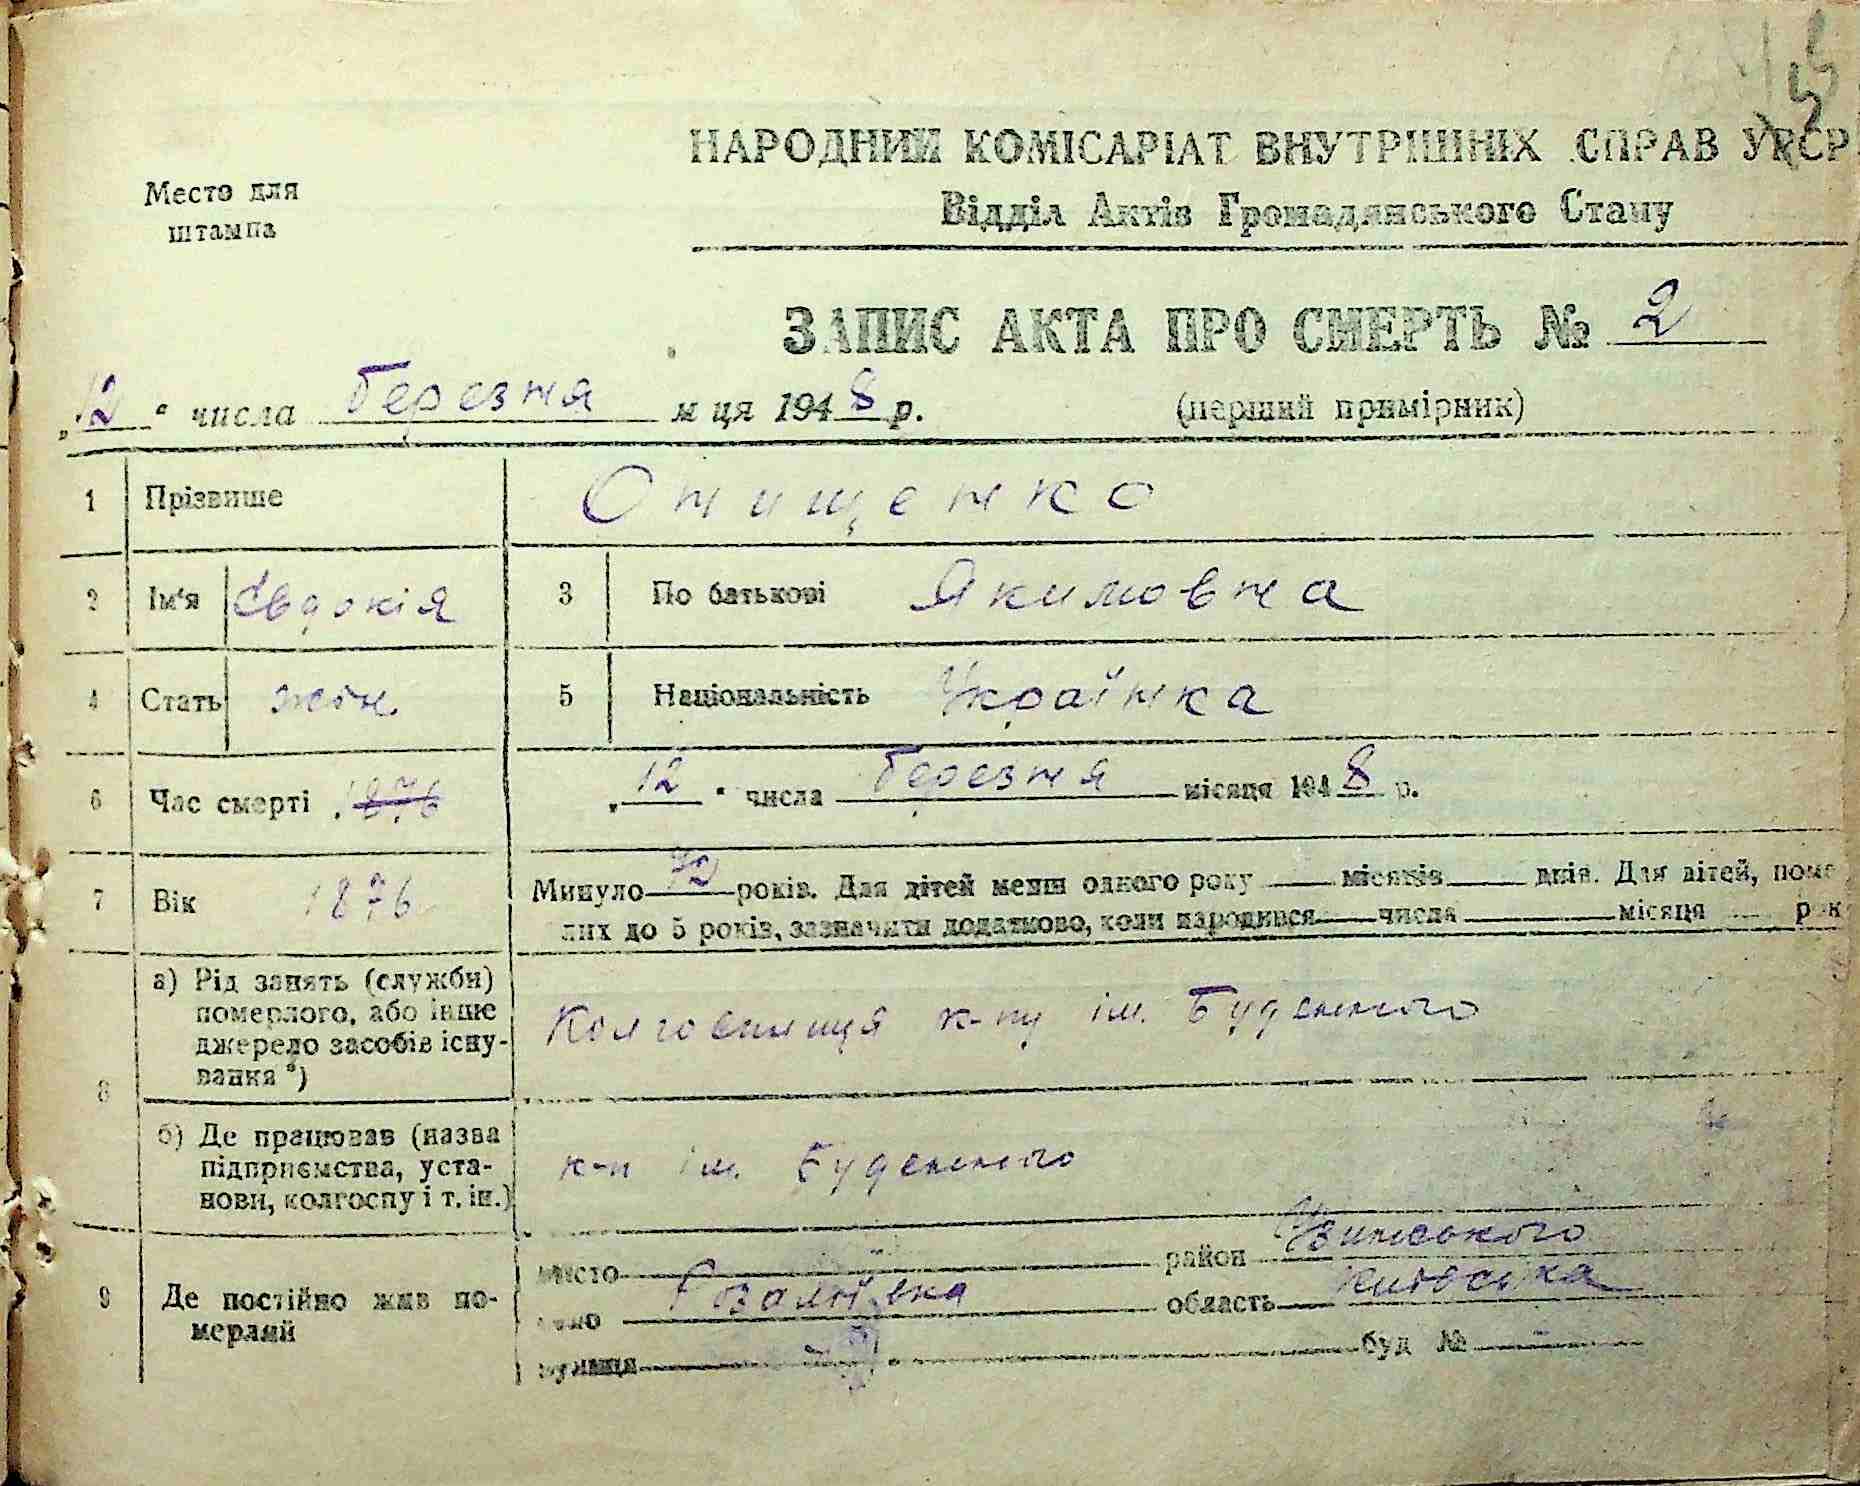 НАРОДНИЙ КОМІСАРІАТ ВНУТРІШНІХ СПРАВ УРСР
Відділ Актів Громадянського Стану
Место для
штампа
ЗАПИС АКТА ПРО СМЕРТЬ № 2
„12“ числа березня м ця 1948 р.
(перший примірник)
1 Прізвище Онищенко
2 Ім'я Євдокія 3 По батькові Якимовна
4 Стать жін. 5 Національність Українка
6 Час смерті 1876 „12“ числа березня місяця 1948 р.
7 Вік 1876 Минуло 72 років. Для дітей менш одного року місяців днів. Для дітей, поме
лих до 5 років, зазначити додатково, коли народився числа місяця рок
8 а) Рід занять (служби)
померлого, або інше
джерело засобів існу-
вання *) Колгоспниця к-пу ім. Буденного
б) Де працював (назва
підприємства, уста-
нови, колгоспу і т. ін.) к-п ім. Буденного
9 Де постійно жив по-
мерлий
місто район Узинського
село Розаліївка область Київська
вулиця - буд № -